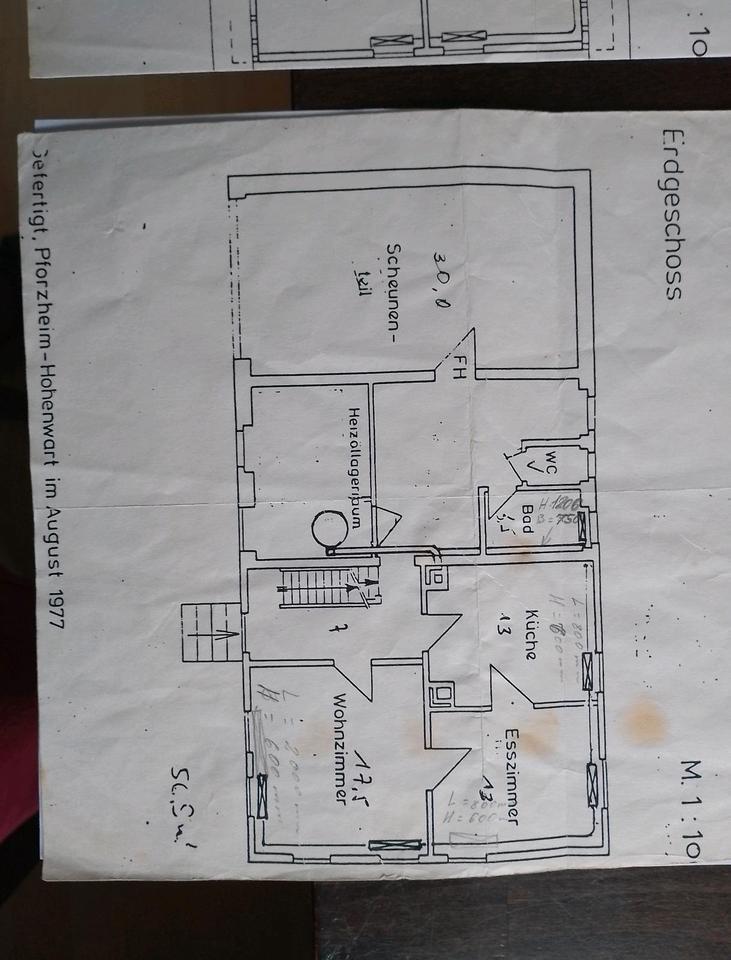 : 10
Erdgeschoss
M. 1 : 10
30,0
Scheunen-
teil
FH
WC
Bad
H 1200
B = 750
Heizöllagerraum
Küche
13
L = 800 mm
H = 600 mm
7
Wohnzimmer
17,5
L = 2000 mm
H = 600 mm
Esszimmer
13
L = 800 mm
H = 600
Gefertigt, Pforzheim-Hohenwart im August 1977